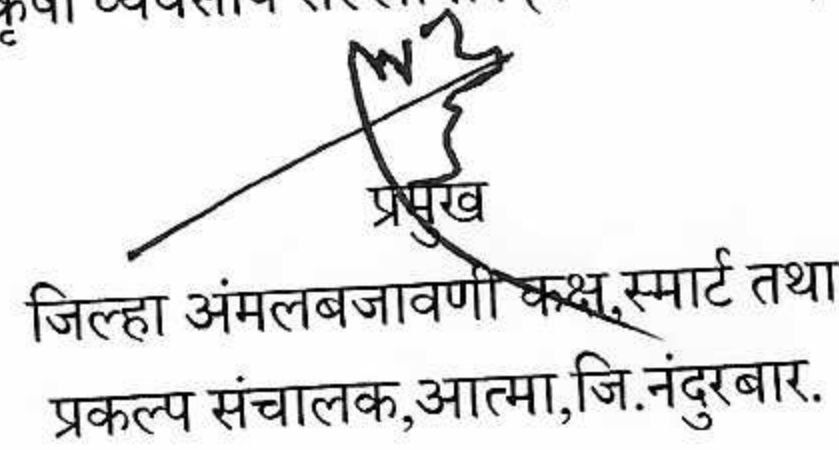 कृषी व्यवसाय
प्रमुख
जिल्हा अंमलबजावणी कक्ष,स्मार्ट तथा
प्रकल्प संचालक,आत्मा,जि.नंदुरबार.